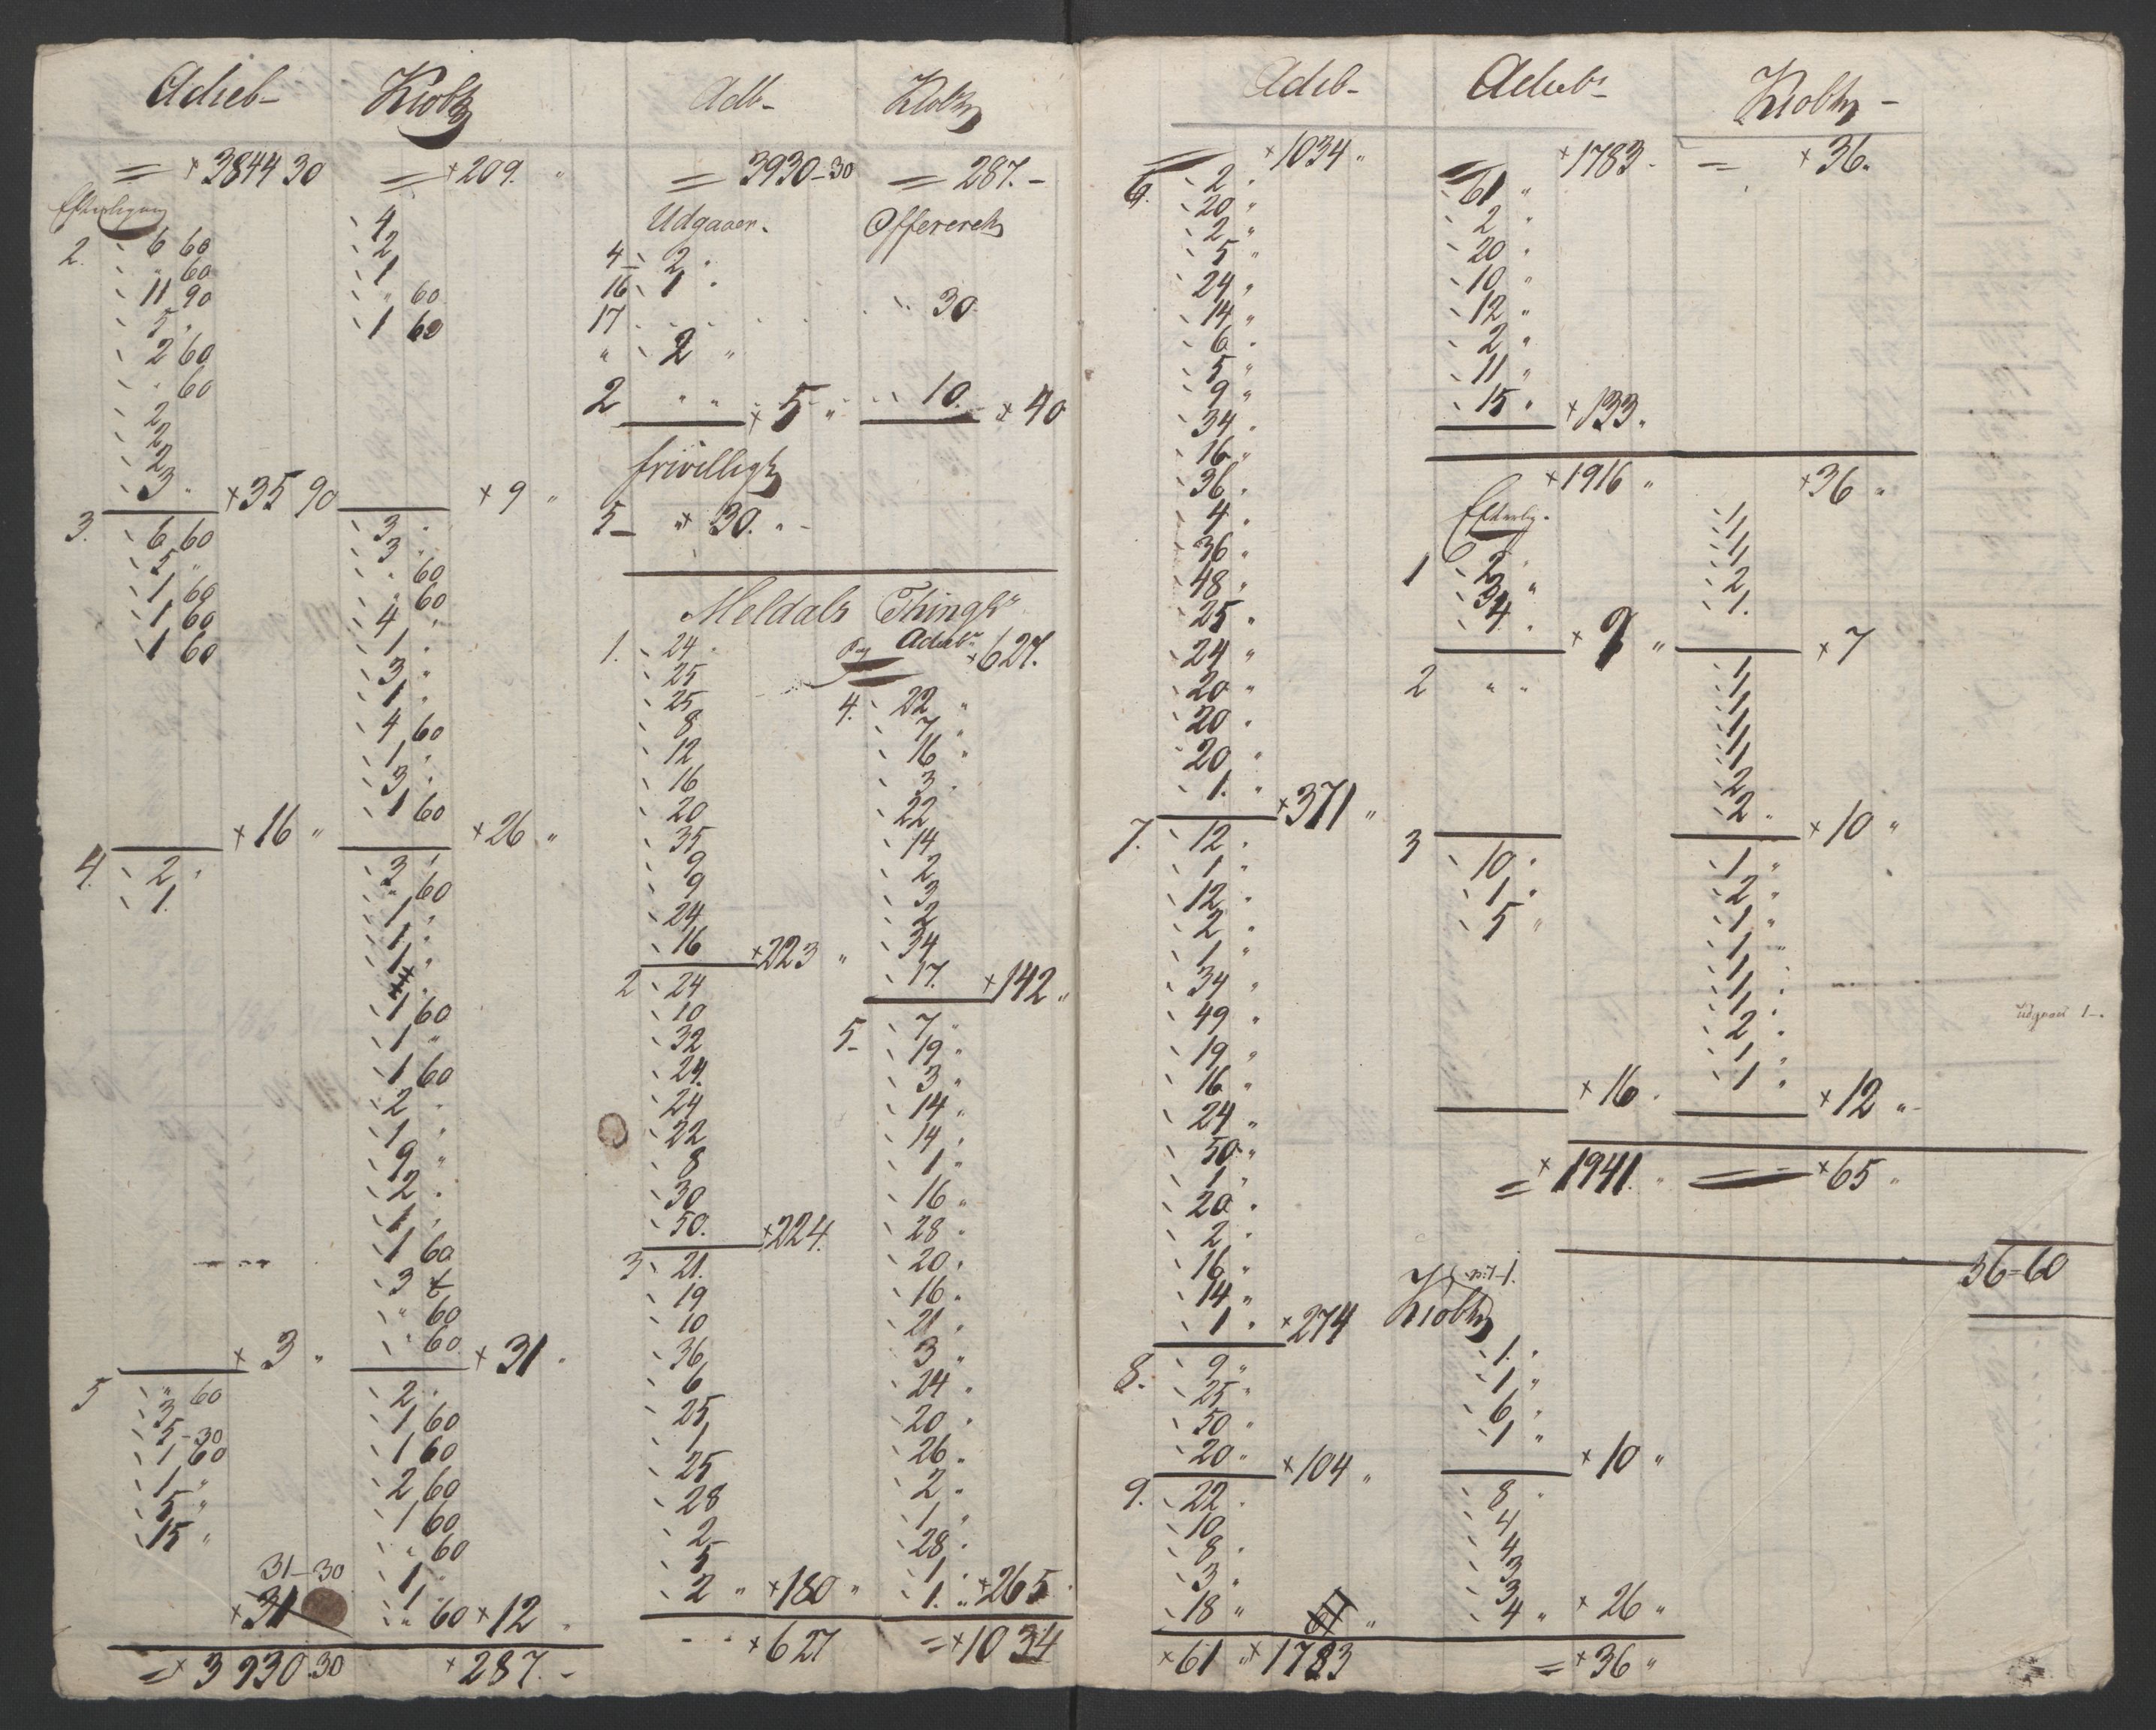 Adieb- Kiobh
= +3844 30 = +209. "
Efterligan
4
2. 6 60 2
" 60 1
11 90 " 60
5. 1 60
2 60
" 60
2
2
2
3 " +35 90 + 9 "
3. 6 60 3 "
5 " 3 "
1 60 " 60
1 60 " 60
1 60 4 "
1 "
3 "
1 "
4 60
1 "
3 "
1 60
+16 " +26 "
4. 2 " 3
1. " 60
1 "
1 "
1 "
1 60
1 "
1 60
2 "
1 "
9 "
2 "
1 "
1 60
3
" 60
" 60
+ 3 " + 31 "
5 " 60 2 "
3 1 60
5-30 1 60
1 60 2 60
1 " 1 60
5 " " 60
15 " 1 "
31-30 1
+31 " 60 +12 "
=+3930.30 +287.-
Adb- Kiobh
= 3930-30 = 287.-
Udgaaer. Offererek
4- 2 "
16 1 "
17 " 30
" 2 "
2 " " + 5 " 10. + 40
frivilligh
5- "+ 30. "-
Meldals Thingh
1. 24
25
25
8
12
16
20
35
9
9
24
16 +223 "
2 24
10
32
24.
24
22
8
30
50. +224.
3 21.
19
10
36
6
25
1
25
28
2
5
2 " +180 "
+627
Adieb +627.
4. 22 "
7 "
16 "
3 "
22
14
2
3
2
34
17. +142 "
5- 7 "
19 "
3 "
14 "
14 "
1 "
16 "
28 "
20 "
16 "
21 "
3 "
24 "
20 "
26 "
2 "
1 "
28 "
1
1. " +265 "
=+1034
Adieb-
+1034 "
6. 2 "
20 "
2 "
5 "
24 "
14 "
6 "
5 "
9 "
34 "
16 "
36 "
4 "
36 "
48 "
25 "
24 "
20 "
20 "
20 "
1. " +371 "
7. 12 "
1 "
12 "
2 "
1 "
34 "
49 "
19 "
16 "
24 "
50 "
1 "
20 "
2 "
16 "
14 "
1 " +274
8. 9 "
25 "
50 "
20 " +104 "
9. 22 "
10
8 "
3 "
18 " 61 "
+61 " +1783
Adieb- Kiobh -
+1783 - = +36.
61 "
2 "
20 "
10 "
12 "
2 "
11 "
15 " +133.
+1916 " +36 "
Efterlig. 1
1
1
1 2 " 2
3 " 1.
4 " + 9 " +7
2 " " 1
1
1
1
2
2 " +10 "
3 10 " 1 "
1 " 2 "
5 " 1 "
1 "
1 "
1 "
2 "
1 "
+16 " 1 " +12 "-
Udgaaer 1-.
=+1941. " +65 "
36=60
Kiobh
1. "
1 "
6 "
1 " +10 "
8 "
4
4
3
3
4 " +26 "
=+36 "